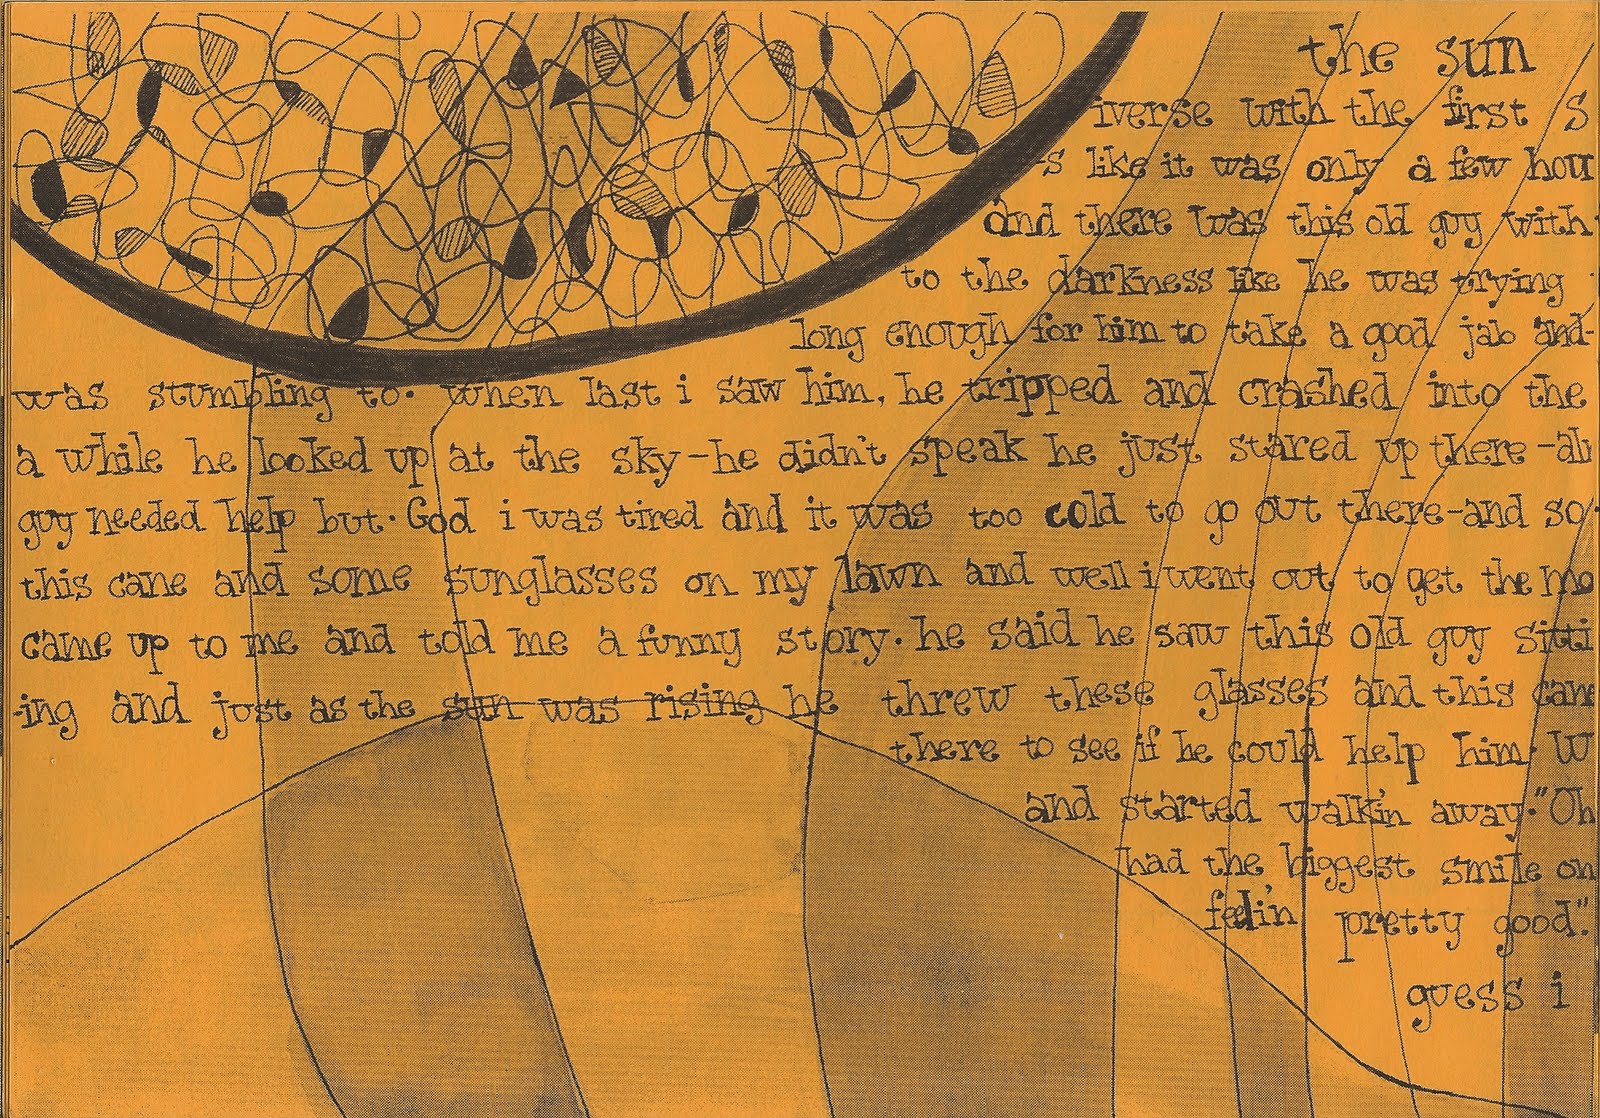 the sun
iverse with the first s
-s like it was only a few hou
and there was this old guy with
to the darkness like he was trying
long enough for him to take a good jab and-
was stumbling to. when last i saw him, he tripped and crashed into the
a while he looked up at the sky-he didn't speak he just stared up there-al
guy needed help but. God i was tired and it was too cold to go out there-and so.
this cane and some sunglasses on my lawn and well i went out to get the mo
came up to me and told me a funny story. he said he saw this old guy sitti
-ing and just as the sun was rising he threw these glasses and this cane
there to see if he could help him. W
and started walk'in away. "Oh
had the biggest smile on
feel'in pretty good."
guess i